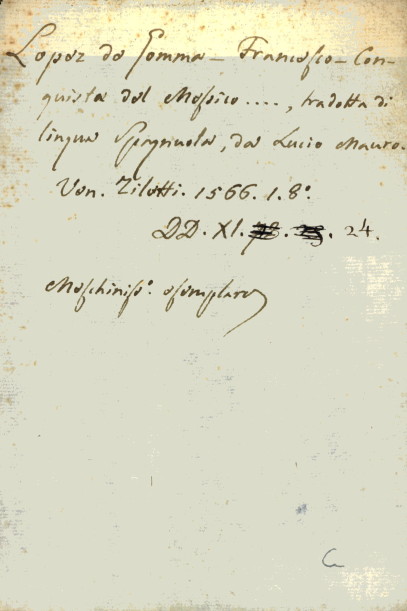 Lopez de Gomma – Francesco – Con-
quista del Messico ...., tradotta di
lingua Spagnuola, da Lucio Mauro.
Ven. Ziletti. 1566. 1. 8º.
DD. XI. 24.
Meschiniss.º esemplare